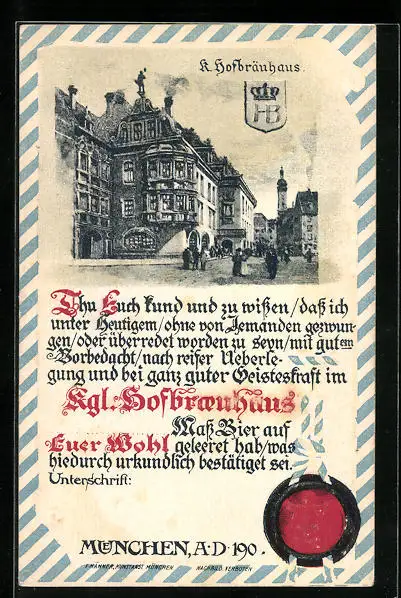 K. Hofbräuhaus.
HB
Thu Euch kund und zu wißen/daß ich
unter Heutigem/ohne von Jemanden gezwun-
gen/oder überredet worden zu seyn/mit gutem
Vorbedacht/nach reifer Ueberle-
gung und bei ganz guter Geisteskraft im
Kgl. Hofbraeuhaus
Maß Bier auf
Euer Wohl geleeret hab/was
hiedurch urkundlich bestätiget sei.
Unterschrift:
MÜNCHEN, A.D. 190 .
KUNSTANST. MÜNCHEN NACHBILD. VERBOTEN